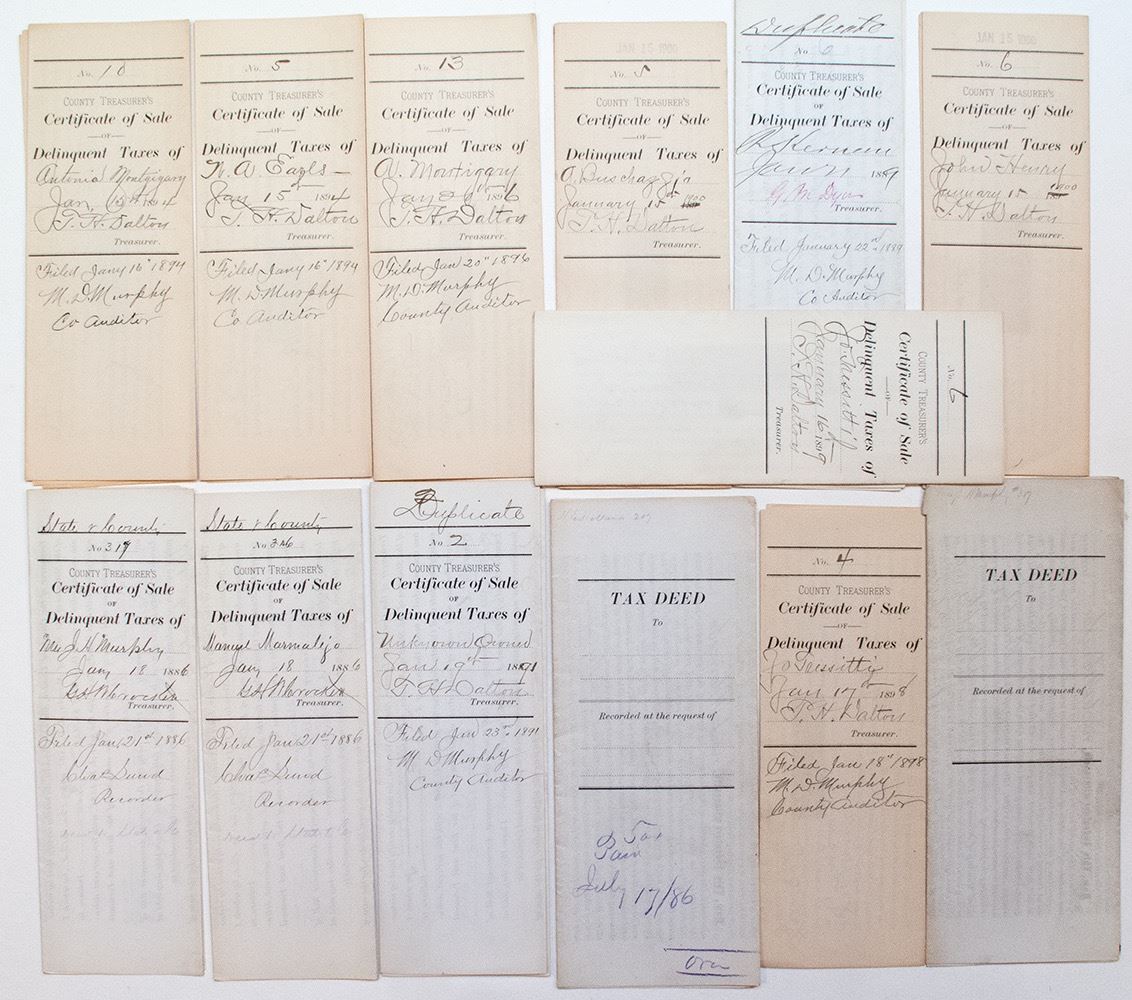 No. 10
COUNTY TREASURER'S
Certificate of Sale
—OF—
Delinquent Taxes of
Antonia Montgigary
Jan. 15th 1894
T. H. Dalton
Treasurer.
Filed Jany 16th 1894
M. D. Murphy
Co Auditor
No. 5
COUNTY TREASURER'S
Certificate of Sale
—OF—
Delinquent Taxes of
A. Eagls
Jan 15th 1894
T. H. Dalton
Treasurer.
Filed Jany 16th 1894
M. D. Murphy
Co Auditor
No. 13
COUNTY TREASURER'S
Certificate of Sale
—OF—
Delinquent Taxes of
A. Montigary
Jan 20th 1896
T. H. Dalton
Treasurer.
Filed Jan 20th 1896
M. D. Murphy
County Auditor
JAN 15 1900
No. 5
COUNTY TREASURER'S
Certificate of Sale
—OF—
Delinquent Taxes of
A. Buschaggia
January 15th 1900
T. H. Dalton
Treasurer.
Duplicate
No.
COUNTY TREASURER'S
Certificate of Sale
OF
Delinquent Taxes of
Kernan
1889
G. M. Dyer
Treasurer.
Filed January 22nd 1889
M. D. Murphy
Co Auditor
JAN 15 1900
No. 6
COUNTY TREASURER'S
Certificate of Sale
—OF—
Delinquent Taxes of
John Henry
January 15 1900
T. H. Dalton
Treasurer.
No. 6
COUNTY TREASURER'S
Certificate of Sale
—OF—
Delinquent Taxes of
Jo. Teissitti
January 16th 1899
T. H. Dalton
Treasurer.
State & County
No 317
COUNTY TREASURER'S
Certificate of Sale
OF
Delinquent Taxes of
Mrs J. H. Murphy
Jany 18 1886
Treasurer.
Filed Jan 21st 1886
Chas Lund
Recorder
State & County
No 346
COUNTY TREASURER'S
Certificate of Sale
OF
Delinquent Taxes of
Manuel Marmalejo
Jany 18 1886
Treasurer.
Filed Jan 21st 1886
Chas Lund
Recorder
Duplicate
No. 2
COUNTY TREASURER'S
Certificate of Sale
OF
Delinquent Taxes of
Unknown Owner
Jan 19th 1891
T. H. Dalton
Treasurer.
Filed Jan 23rd 1891
M D Murphy
County Auditor
TAX DEED
To
Recorded at the request of
July 17/86
Over
No. 4
COUNTY TREASURER'S
Certificate of Sale
—OF—
Delinquent Taxes of
Jo Teissitti
Jan 17th 1898
T. H. Dalton
Treasurer.
Filed Jan 18th 1898
M. D. Murphy
County Auditor
TAX DEED
To
Recorded at the request of